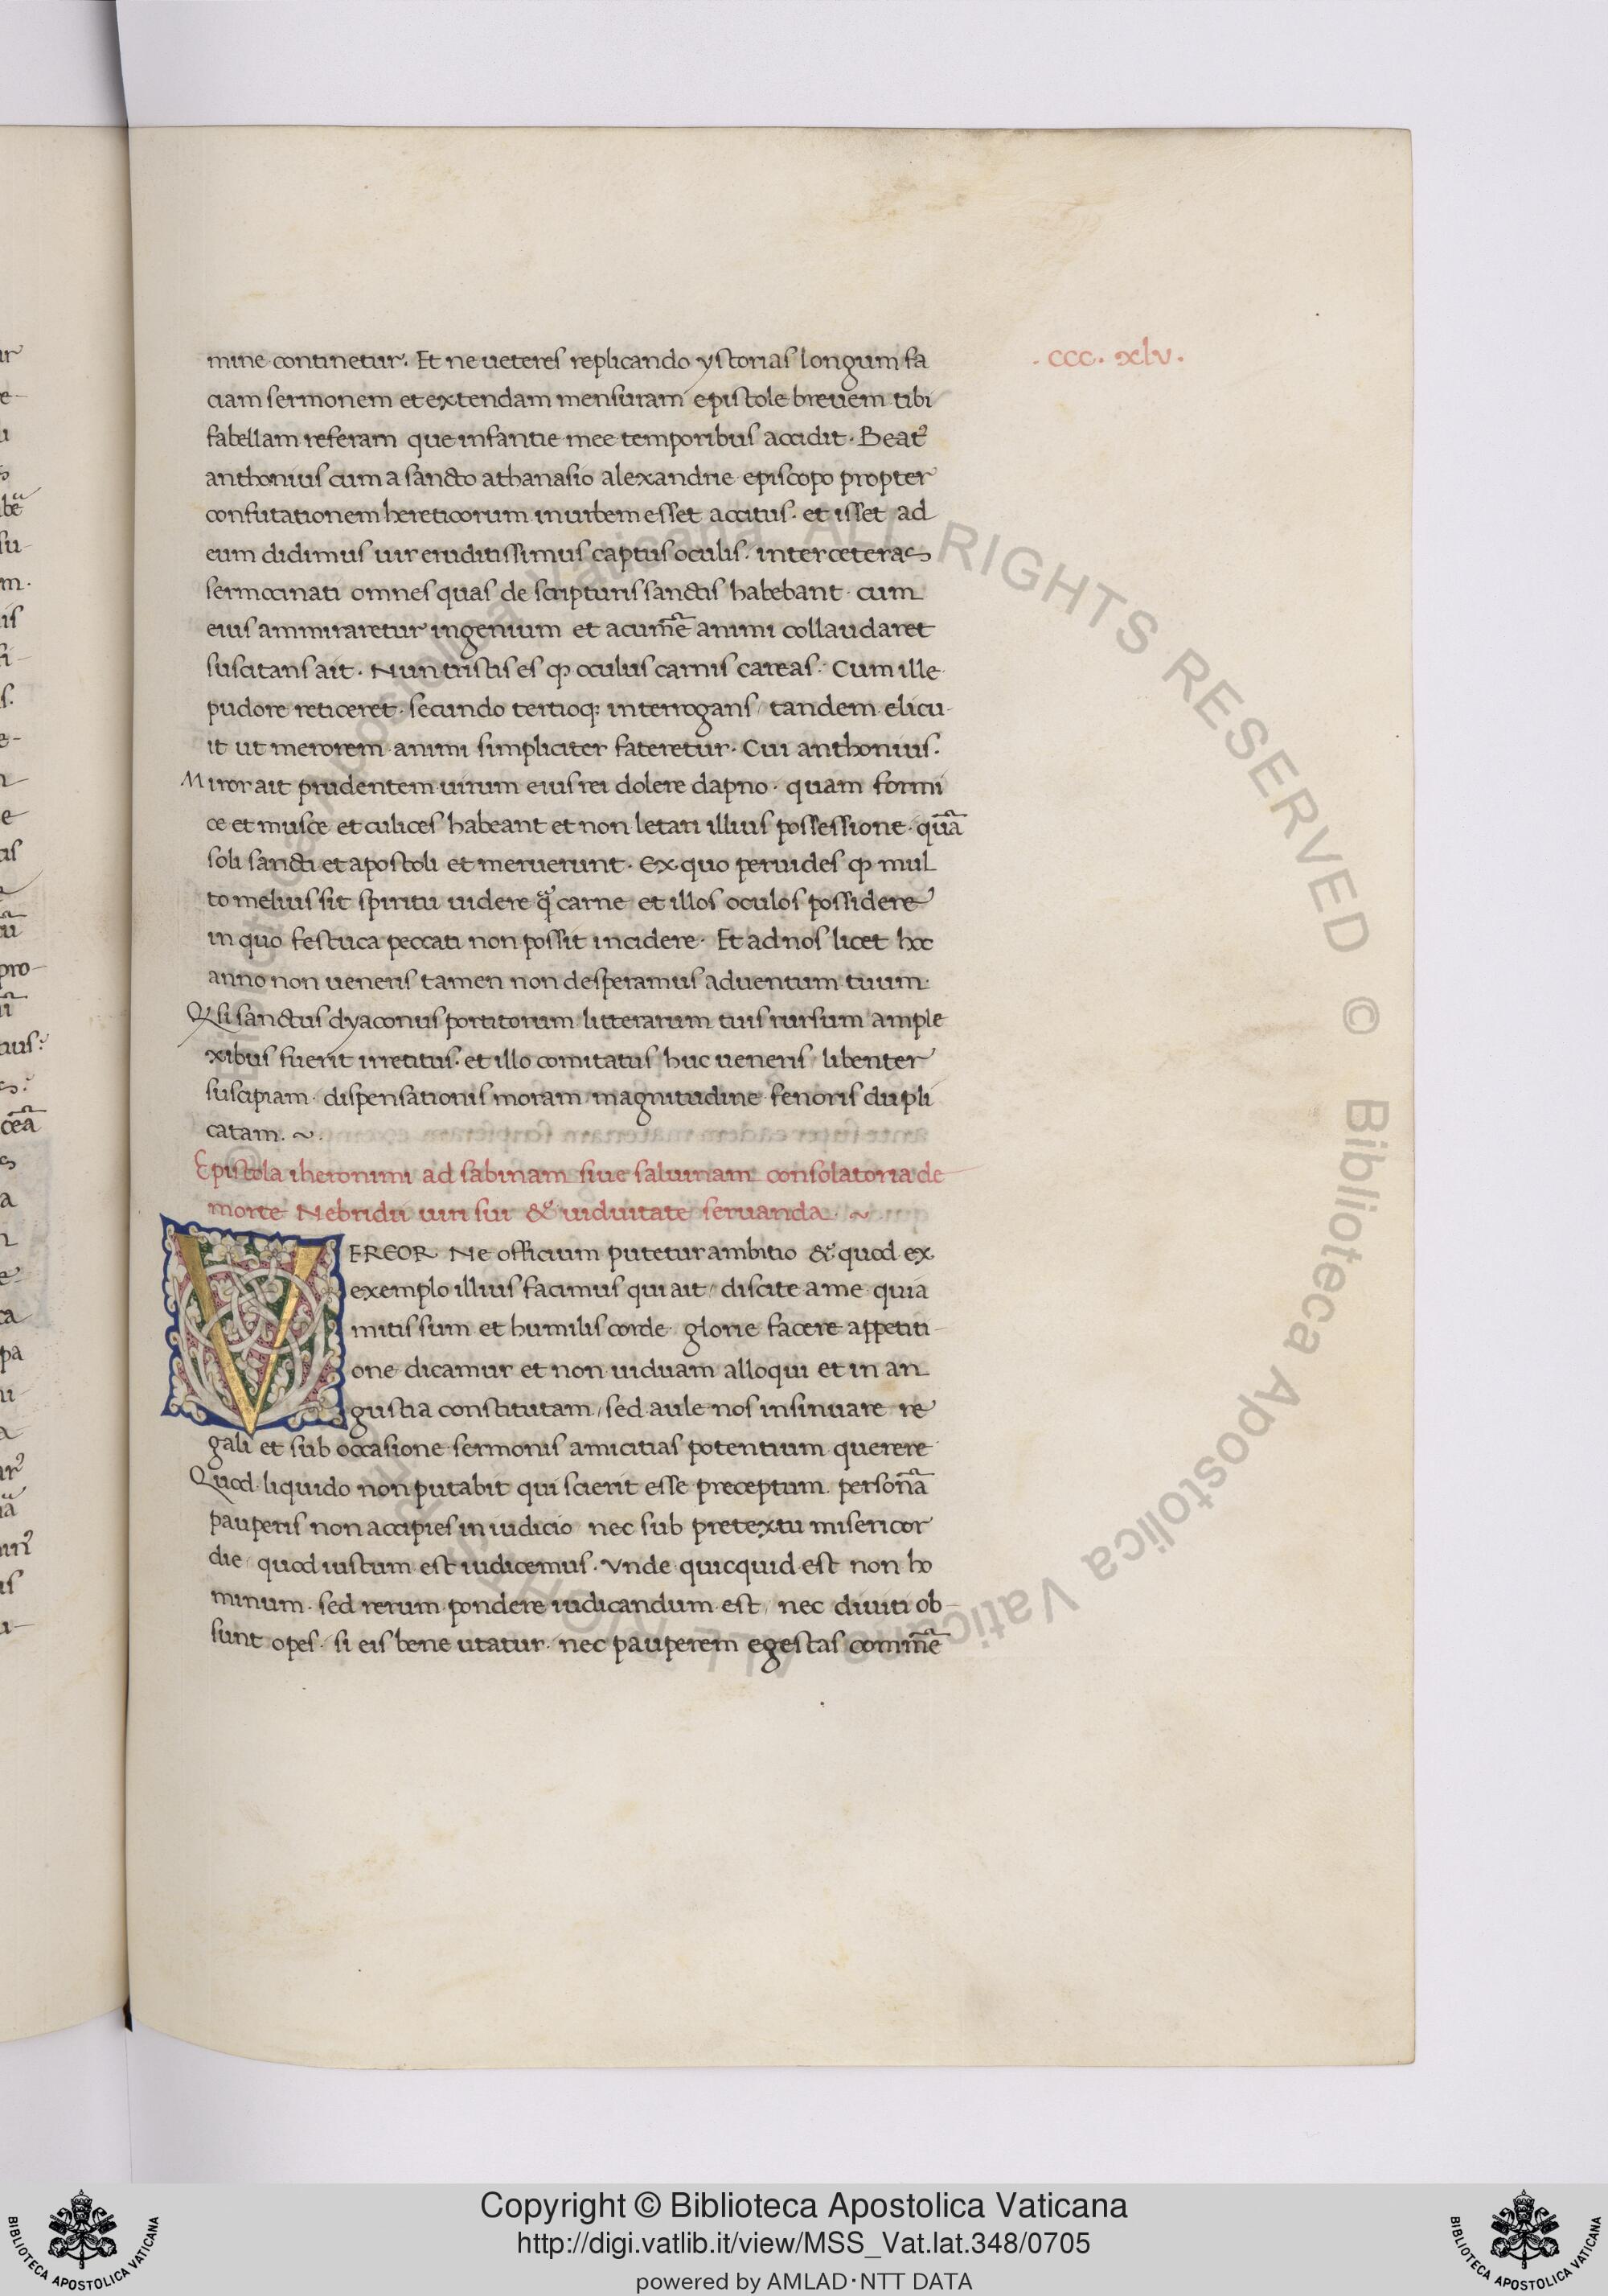 .ccc. xlv.
mine continetur. Et ne ueteres replicando ystorias longum fa
ciam sermonem et extendam mensuram epistole breuem tibi
fabellam referam que infantie mee temporibus accidit. Beatꝰ
anthonius cum a sancto athanasio alexandrie episcopo propter
confutationem hereticorum in urbem esset accitus. et isset ad
eum didimus uir eruditissimus captus oculis. inter ceteras
sermocinati omnes quas de scripturis sanctis habebant. cum
eius ammiraretur ingenium et acumē animi collaudaret
suscitans ait. Nun tristis es ꝙ oculus carnis careas. Cum ille
pudore reticeret. secundo tertioqꝫ interrogans / tandem elicu-
it ut merorem animi simpliciter fateretur. Cui anthonius.
Miror ait prudentem uirum eius rei dolere dapno. quam formi
ce et musce et culices habeant et non letari illius possessione. quā
soli sancti et apostoli et meruerunt. Ex quo peruides ꝙ mul
to melius sit spiritu uidere q̃ carne et illos oculos possidere
in quo festuca peccati non possit incidere. Et ad nos licet hoc
anno non ueneris tamen non desperamus aduentum tuum.
Q, si sanctus dyaconus portitorum litterarum tuis rursum ample
xibus fuerit irretitus. et illo comitatus huc ueneris libenter
suscipiam. dispensationis moram magnitudine fenoris dupli
catam. ~.
Epistola iheronimi ad sabinam siue saluinam consolatoria de
morte Nebridii uiri sui & uiduitate seruanda. ~
VEREOR Ne officium putetur ambitio & quod ex
exemplo illius facimus qui ait / discite a me quia
mitis sum et humilis corde glorie facere appetiti-
one dicamur et non uiduam alloqui et in an
gustia constitutam / sed aule nos insinuare re
gali et sub occasione sermonis amicitias potentium querere
Quod liquido non putabit qui scierit esse preceptum. personā
pauperis non accipies in iudicio nec sub pretextu misericor
die / quod iustum est iudicemus. Vnde quicquid est non ho
minum. sed rerum pondere iudicandum est / nec diuiti ob-
sunt opes. si eis bene utatur. nec pauperem egestas commē
© Biblioteca Apostolica Vaticana ALL RIGHTS RESERVED
Copyright © Biblioteca Apostolica Vaticana
http://digi.vatlib.it/view/MSS_Vat.lat.348/0705
powered by AMLAD・NTT DATA
BIBLIOTECA APOSTOLICA VATICANA
BIBLIOTECA APOSTOLICA VATICANA